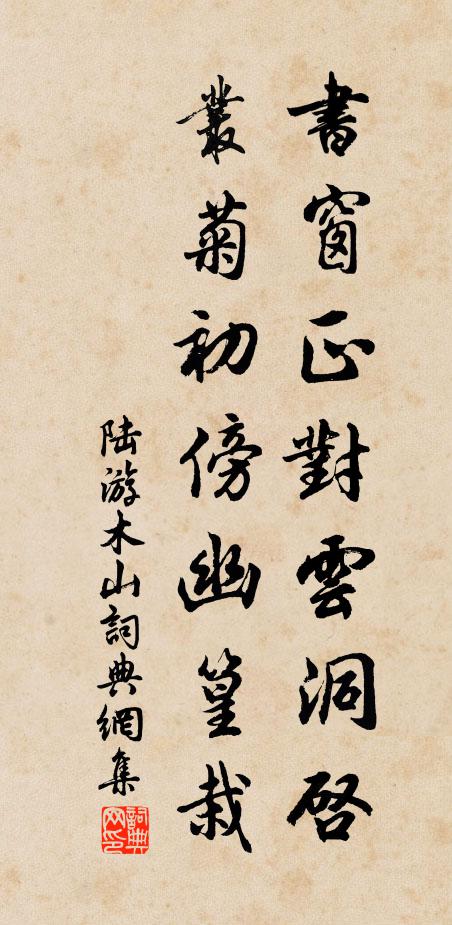 書窗正對雲洞啓
叢菊初傍幽篁栽
陆游木山詞典網集
詞典网印